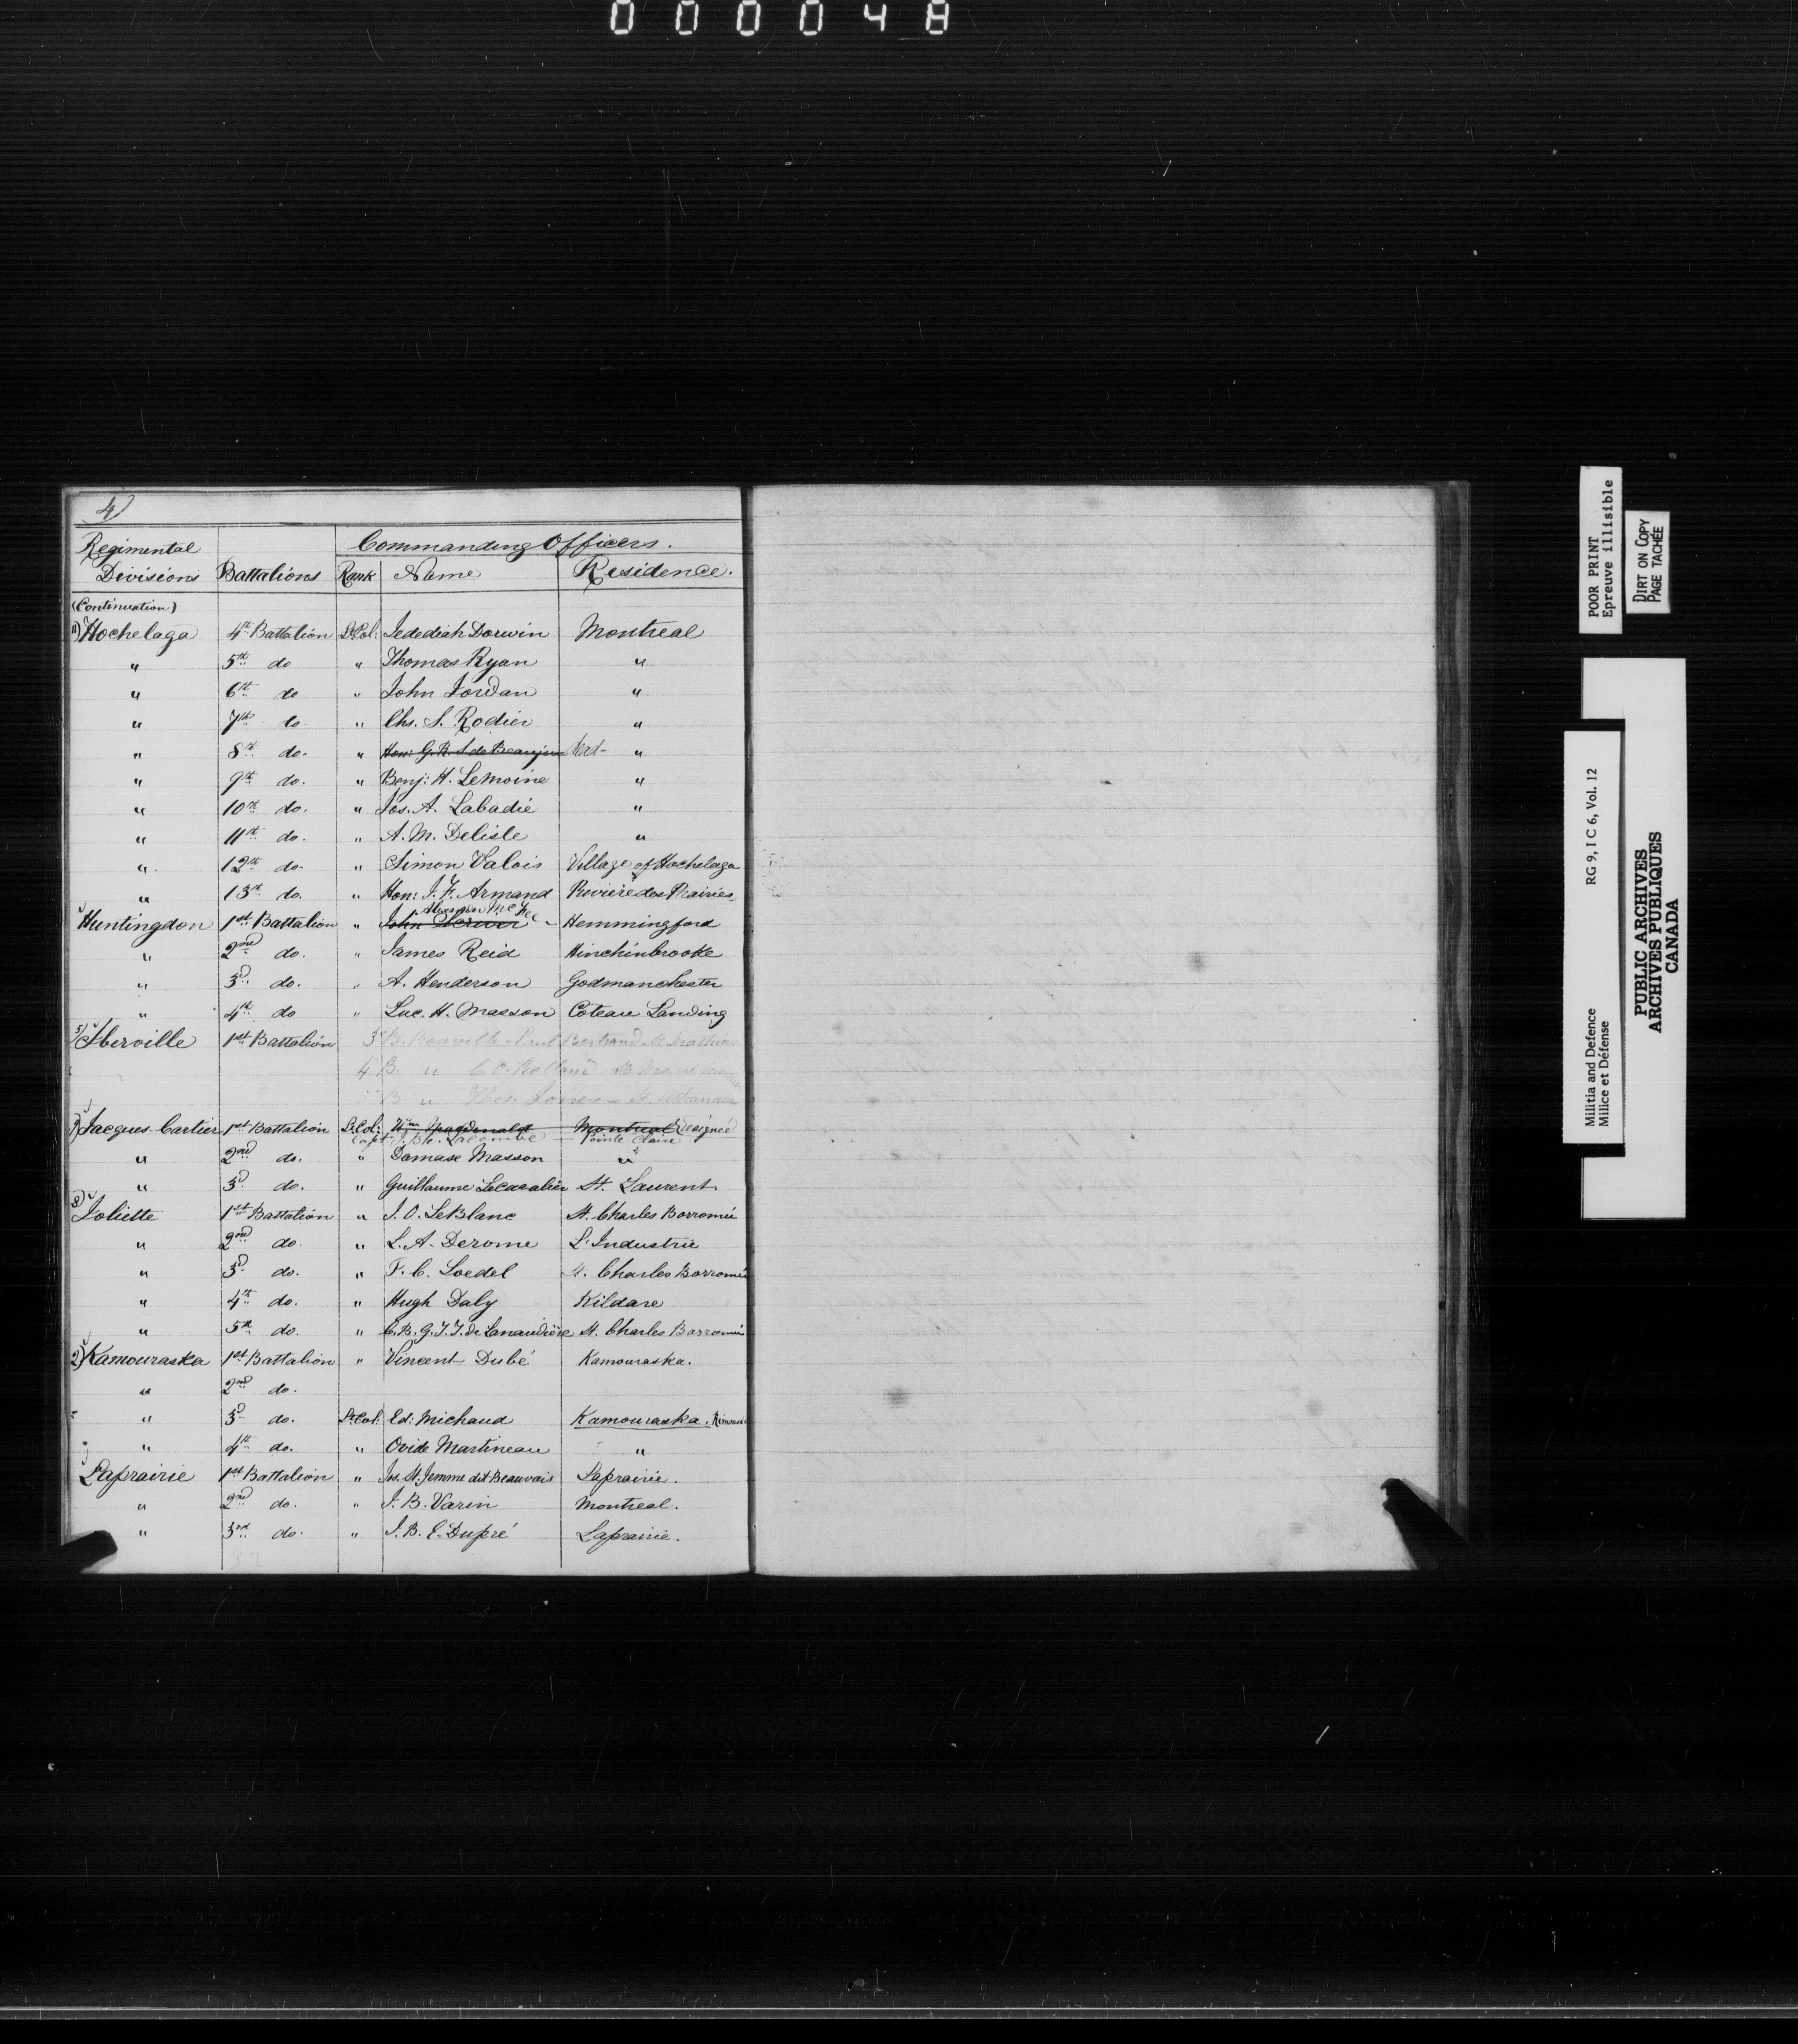 000048
4)
Commanding Officers.
Regimental Divisions Battalions Rank Name Residence.
(Continuation)
11) Hochelaga 4th Battalion Lt. Col: Jedediah Dorwin Montreal
" 5th do " Thomas Ryan "
" 6th do " John Jordan "
" 7th do " Chs. S. Rodier "
" 8th do. " Hon: G. R. S. de Beaujeu dead- "
" 9th do. " Benj: H. LeMoine "
" 10th do. " Jos. A. Labadie "
" 11th do. " A. M. Delisle "
" 12th do. " Simon Valois Village of Hochelaga
" 13th do. " Hon: J. F. Armand Rivière des Prairies
Alexander
Huntingdon 1st Battalion " John Scriver Hemmingford
" 2nd do. " James Reid Hinchinbrooke
" 3d. do. " A. Henderson Godmanchester
" 4th do " Luc. H. Masson Coteau Landing
5) Iberville 1st Battalion 3 B. Rouville Bertrand St. Mathias
4 B. " Rolland St. Marie
5 B. " Thos. Jones
Jacques Cartier 1st Battalion Lt. Col: Wm Macdonald Montreal Resigned
Capt. J. Bte. Lacombe - Pointe Claire
" 2nd do. " Damase Masson "
" 3d do. " Guillaume Lecavalier St. Laurent
8) Joliette 1st Battalion " J. O. LeBlanc St. Charles Borromée
" 2nd do. " L. A. Derome L'Industrie
" 3d do. " P. C. Loedel St. Charles Borromée
" 4th do. " Hugh Daly Kildare
" 5th do. " C. B. G. T. T. de Lanaudière St. Charles Borromée
2) Kamouraska 1st Battalion " Vincent Dubé Kamouraska.
" 2nd do.
" 3d do. Lt. Col: Ed: Michaud Kamouraska.
" 4th do. " Ovide Martineau "
Laprairie 1st Battalion " Jos. St. Jemme dit Beauvais Laprairie.
" 2nd do. " J. B. Varin Montreal.
" 3rd do. " J. B. E. Dupré Laprairie.
32
POOR PRINT
Epreuve illisible
DIRT ON COPY
PAGE TACHÉE
Militia and Defence RG 9, I C 6, Vol. 12
Milice et Défense
PUBLIC ARCHIVES
ARCHIVES PUBLIQUES
CANADA